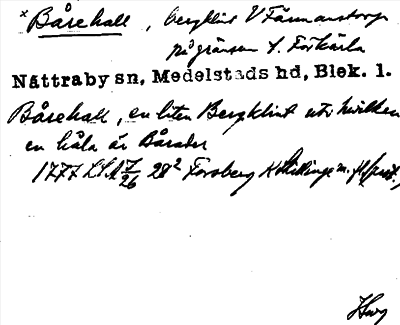 × Bårehall, bergklint V Färmanstorp
på gränsen t. Förkärla
Nättraby sn, Medelstads hd, Blek. 1.
Bårehall, en liten Bergklint uti hvilken
en håla är
1777 LSA 28² Forsberg